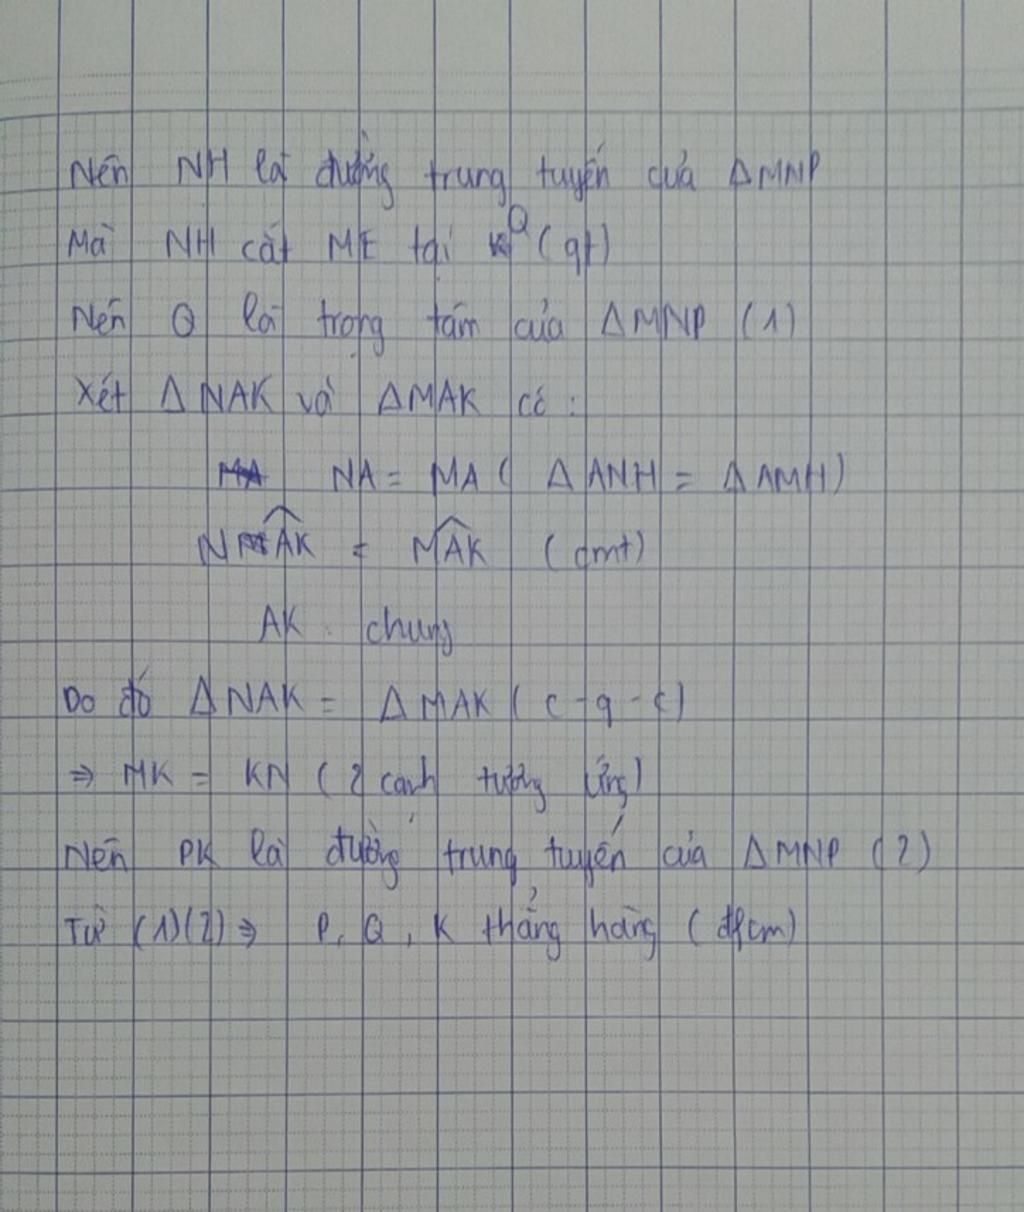 Nên NH là đường trung tuyến của ΔMNP
Mà NH cắt ME tại Q (gt)
Nên Q là trọng tâm của ΔMNP (1)
Xét ΔNAK và ΔMAK có :
NA = MA ( ΔANH = ΔAMH)
NAK = MAK (cmt)
AK chung
Do đó ΔNAK = ΔMAK ( c-g-c)
⇒ MK = KN (2 cạnh tương ứng)
Nên PK là đường trung tuyến của ΔMNP (2)
Từ (1)(2) ⇒ P, Q, K thẳng hàng (đpcm)